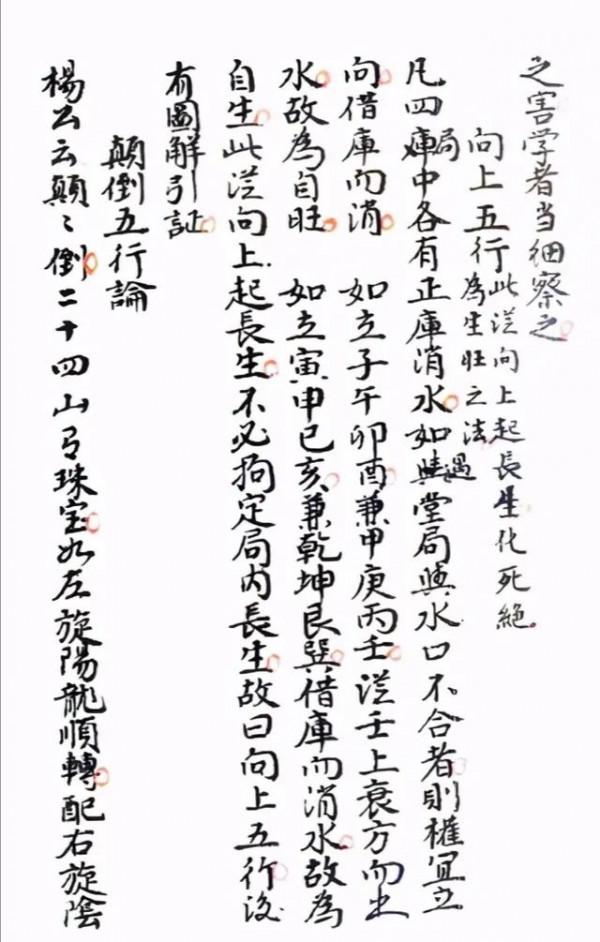 之害学者当细察之
向上五行此從向上起長生化死絕為生旺之法
凡四局庫中各有正庫消水如遇堂局與水口不合者則權宜立
向借庫而消 如立子午卯酉兼甲庚丙壬從壬上衰方而出
水故為自旺 如立寅申巳亥兼乾坤艮巽借庫而消水故為
自生此從向上起長生不必拘定局內長生故曰向上五行後
有圖解引証
顛倒五行論
楊公云顛々倒二十四山弓珠宝如左旋陽龍順轉配右旋陰